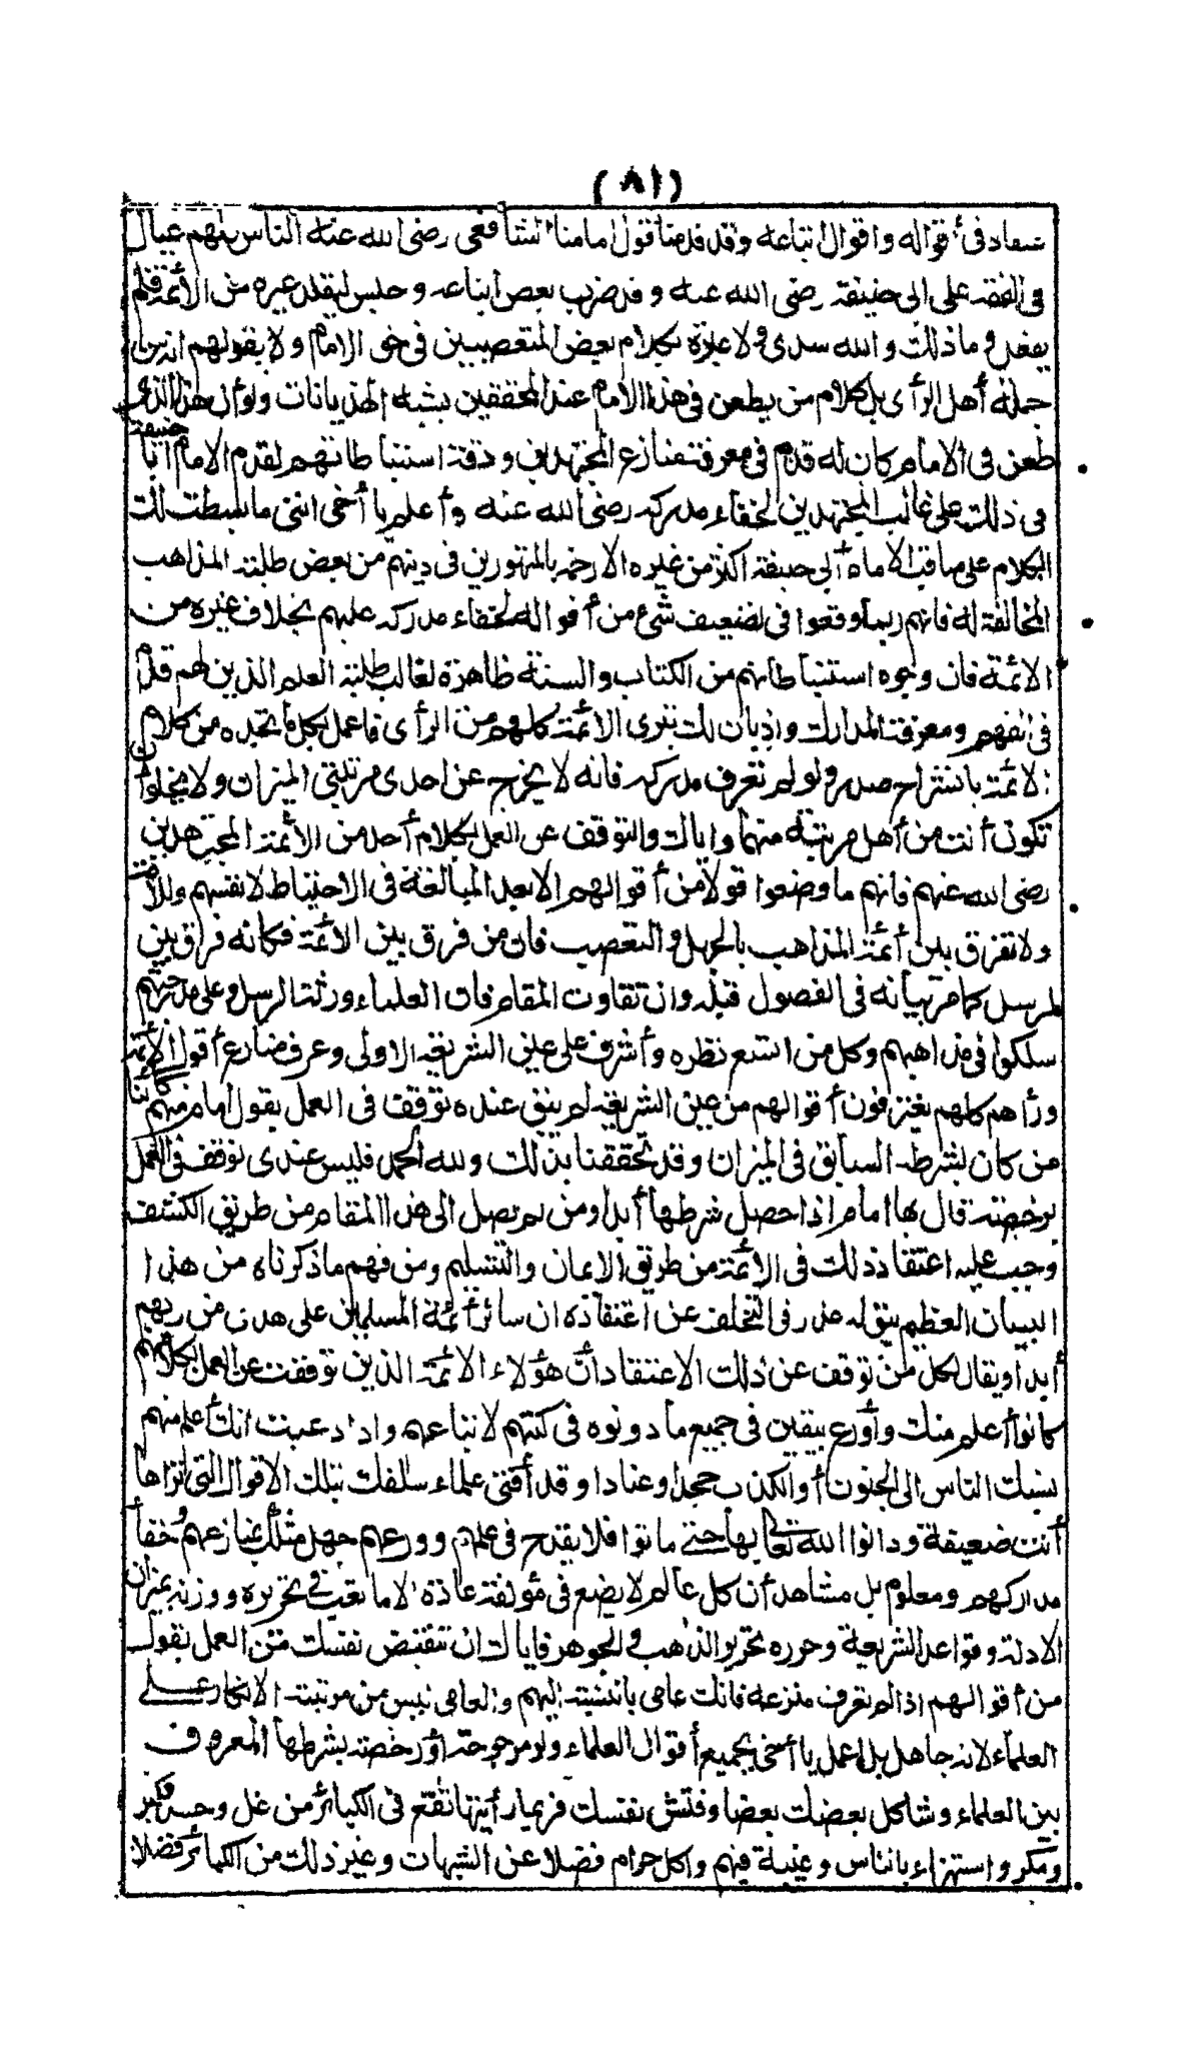 (٨١)
عتقاد فى أقواله وأقوال اتباعه وقد قدمنا قول امامنا الشافعى رضى الله عنه الناس كلهم عيال
فى الفقه على ابى حنيفة رضى الله عنه وقد ضرب بعض اتباعه وحبس ليقلد غيره من الأئمة فلم
يفعل وما ذلك والله سدى ولا عبرة بكلام بعض المتعصبين فى حق الامام ولا بقولهم انه من
جملة أهل الرأى بل كلام من يطعن فى هذا الامام عند المحققين يشبه الهذيانات ولو أن هذا الذى
طعن فى الامام كان له قدم فى معرفة منازع المجتهدين ودقة استنباطاتهم لقدم الامام أبا حنيفة
فى ذلك على غالب المجتهدين لخفاء مدركه رضى الله عنه وأعلم يا أخى اننى ما بسطت لك
الكلام على مناقب الامام أبى حنيفة أكثر من غيره الا رحمة بالمتهورين فى دينهم من بعض طلبة المذاهب
المخالفة له فانهم ربما وقعوا فى تضعيف شئ من أقواله لخفاء مدركه عليهم بخلاف غيره من
الائمة فان وجوه استنباطاتهم من الكتاب والسنة ظاهرة لغالب طلبة العلم الذين لهم قدم
فى الفهم ومعرفة المدارك واذ بان لك تبرى الائمة كلهم من الرأى فاعمل بكل ما تجده من كلام
الائمة بانشراح صدر ولو لم تعرف مدركه فانه لا يخرج عن احدى مرتبتى الميزان ولا يخلو أن
تكون أنت من أهل مرتبة منهما واياك والتوقف عن العمل بكلام أحد من الأئمة المجتهدين
رضى الله عنهم فانهم ما وضعوا قولا من أقوالهم الا بعد المبالغة فى الاحتياط لانفسهم وللأمة
ولا تفرق بين أئمة المذاهب بالجهل والتعصب فان من فرق بين الأئمة فكانه فرق بين
الرسل كما مر بيانه فى الفصول قبله وان تفاوت المقام فان العلماء ورثة الرسل وعلى مدرجتهم
سلكوا فى مذاهبهم وكل من اتسع نظره وأشرف على عين الشريعة الاولى وعرف منازع أقوال الائمة
ورآهم كلهم يغترفون أقوالهم من عين الشريعة لم يبق عنده توقف فى العمل بقول امام منهم كائنا
من كان بشرطه السابق فى الميزان وقد تحققنا بذلك ولله الحمد فليس عندى توقف فى العمل
برخصة قال بها امام اذا حصل شرطها أبدا ومن لم يصل الى هذا المقام من طريق الكشف
وجب عليه اعتقاد ذلك فى الائمة من طريق الايمان والتسليم ومن فهم ما ذكرناه من هذا
البيان العظيم لم يبق له عذر فى التخلف عن اعتقاده ان سائر أئمة المسلمين على هدى من ربهم
أبدا ويقال لكل من توقف عن ذلك الاعتقاد أن هؤلاء الائمة الذين توقفت عن العمل بكلامهم
كانوا أعلم منك وأورع بيقين فى جميع ما دونوه فى كتبهم لاتباعهم وان ادعيت انك أعلم منهم
نسبك الناس الى الجنون أو الكذب جحدا وعنادا وقد أفتى علماء سلفك بتلك الاقوال التى تراها
أنت ضعيفة ودانوا الله تعالى بها حتى ماتوا فلا يقدح فى علمهم وورعهم جهل مثلك بمنازعهم وخفاء
مداركهم ومعلوم بل مشاهد أن كل عالم لا يضع فى مؤلفه عادة الا ما تعب فى تحريره ووزنه بميزان
الادلة وقواعد الشريعة وحرره تحرير الذهب والجوهر فاياك ان تنقبض نفسك من العمل بقول
من أقوالهم اذا لم تعرف منزعه فانك عامى بالنسبة اليهم والعامى ليس من مرتبته الانكار على
العلماء لانه جاهل بل اعمل يا أخى بجميع أقوال العلماء ولو مرجوحة أو رخصة بشرطها المعروف
بين العلماء وشاكل بعضك بعضا وفتش نفسك فربما رأيتها تقع فى الكبائر من غل وحسد وكبر
ومكر واستهزاء بالناس وغيبة فيهم وأكل حرام فضلا عن الشبهات وغير ذلك من الكبائر فضلا